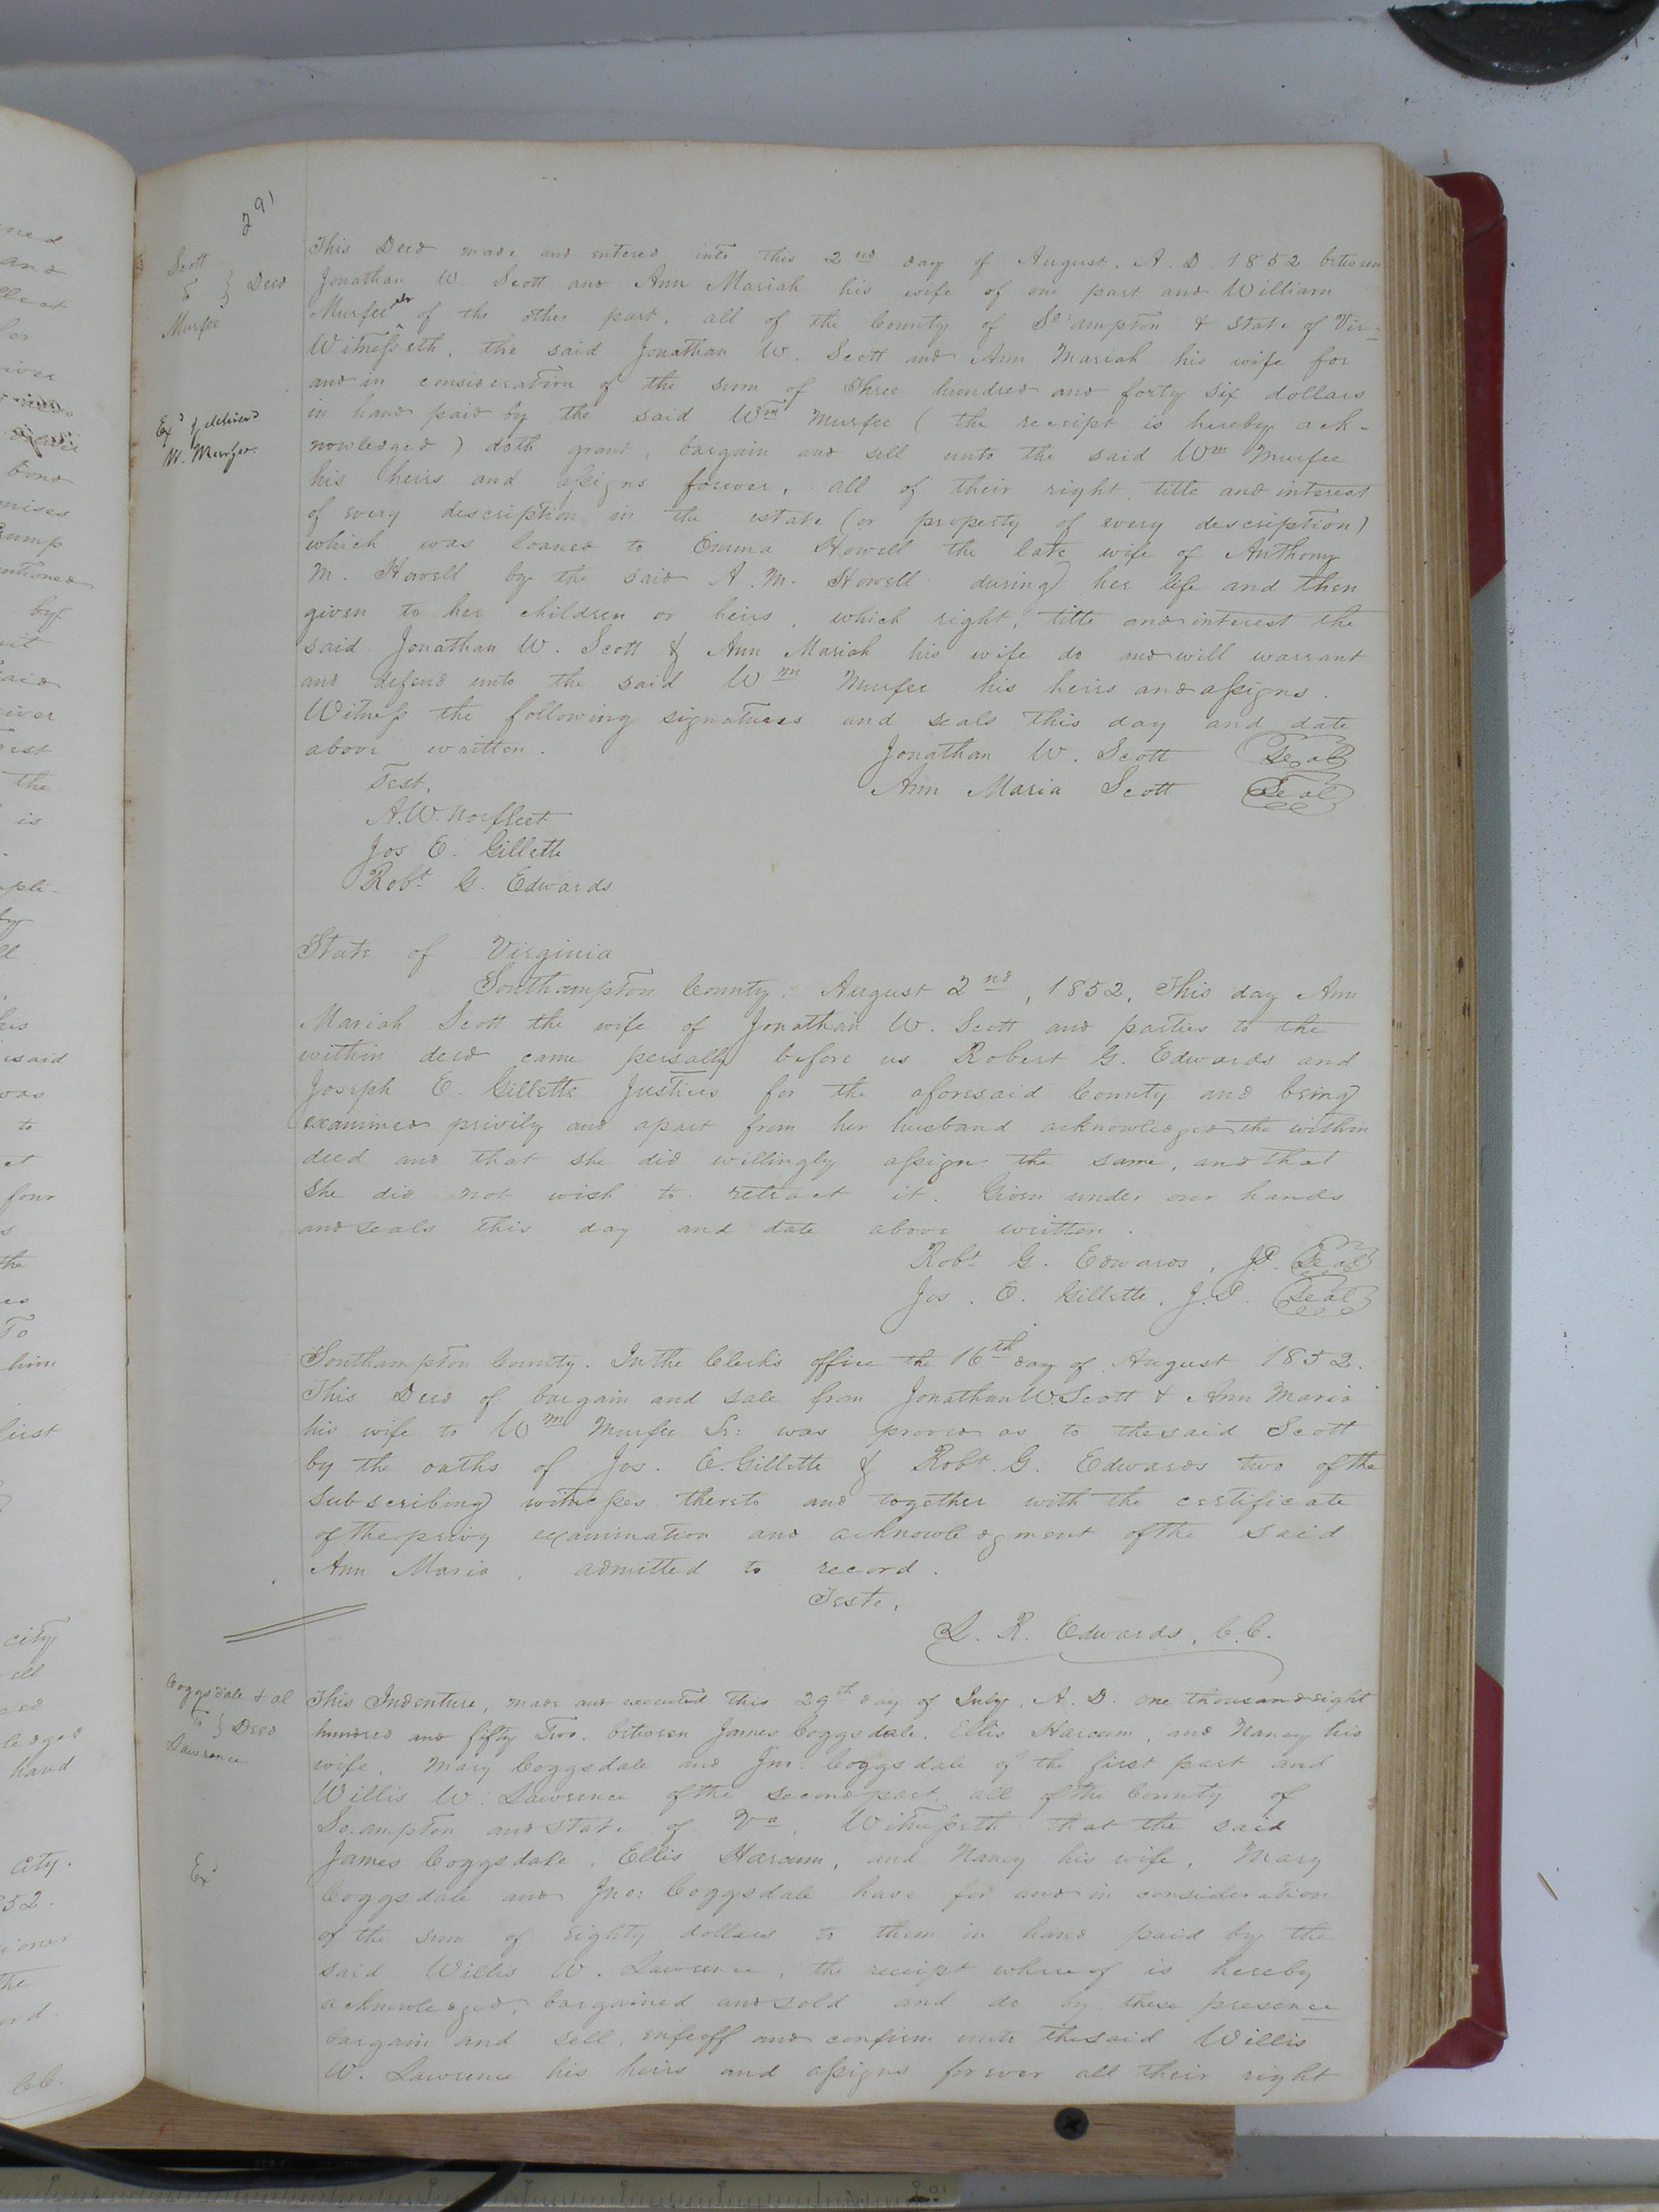 291
Scott
To } Deed
Murfee
Exd & deliverd
W. Murfee.
This Deed made and entered into this 2nd day of August, A. D. 1852 between
Jonathan W. Scott and Ann Mariah his wife of one part and William
Murfee of the other part, all of the County of So'ampton & State of Vir-
Witnesseth, the said Jonathan W. Scott and Ann Mariah his wife for
and in consideration of the sum of Three hundred and forty six dollars
in hand paid by the said Wm Murfee ( the receipt is hereby ack-
nowledged ) doth grant, bargain and sell unto the said Wm Murfee
his heirs and assigns forever, all of their right, title and interest
of every description in the estate (or property of every description)
which was loaned to Emma Howell the late wife of Anthony
M. Howell by the said A. M. Howell during her life and then
given to her children or heirs, which right, title and interest the
said Jonathan W. Scott & Ann Mariah his wife do and will warrant
and defend unto the said Wm Murfee his heirs and assigns.
Witness the following signatures and seals this day and date
above written.
Jonathan W. Scott Seal
Ann Maria Scott Seal
Test,
A. W. Norfleet
Jos E. Gillette
Robt G. Edwards
State of Virginia
Southampton County. August 2nd, 1852, This day Ann
Mariah Scott the wife of Jonathan W. Scott and parties to the
within deed came persally before us Robert G. Edwards and
Joseph E. Gillette Justices for the aforesaid County and being
examined privily and apart from her husband acknowledged the within
deed and that she did willingly assign the same, and that
she did not wish to retract it. Given under our hands
and seals this day and date above written.
Robt G. Edwards, J.P. Seal
Jos. E. Gillette, J.P. Seal
Southampton County. In the Clerk's office the 16th day of August 1852.
This Deed of bargain and sale from Jonathan W. Scott & Ann Maria
his wife to Wm Murfee Sr: was proved as to the said Scott
by the oaths of Jos. E. Gillette & Robt. G. Edwards two of the
subscribing witnesses thereto and together with the certificate
of the privy examination and acknowledgment of the said
Ann Maria, admitted to record.
Teste,
L. R. Edwards, C.C.
Coggsdale & al
To } Deed
Lawrence
Exd
This Indenture, made and executed this 29th day of July, A. D. one thousand eight
hundred and fifty Two, between James Coggsdale, Ellis Harcum, and Nancy his
wife, Mary Coggsdale and Jno: Coggsdale of the first part and
Willis W. Lawrence of the second part, all of the County of
So.ampton and State of Va. Witnesseth that the said
James Coggsdale, Ellis Harcum, and Nancy his wife, Mary
Coggsdale and Jno: Coggsdale have for and in consideration
of the sum of eighty dollars to them in hand paid by the
said Willis W. Lawrence, the receipt whereof is hereby
acknowledged, bargained and sold and do by these presence
bargain and sell, enfeoff and confirm unto the said Willis
W. Lawrence his heirs and assigns forever all their right